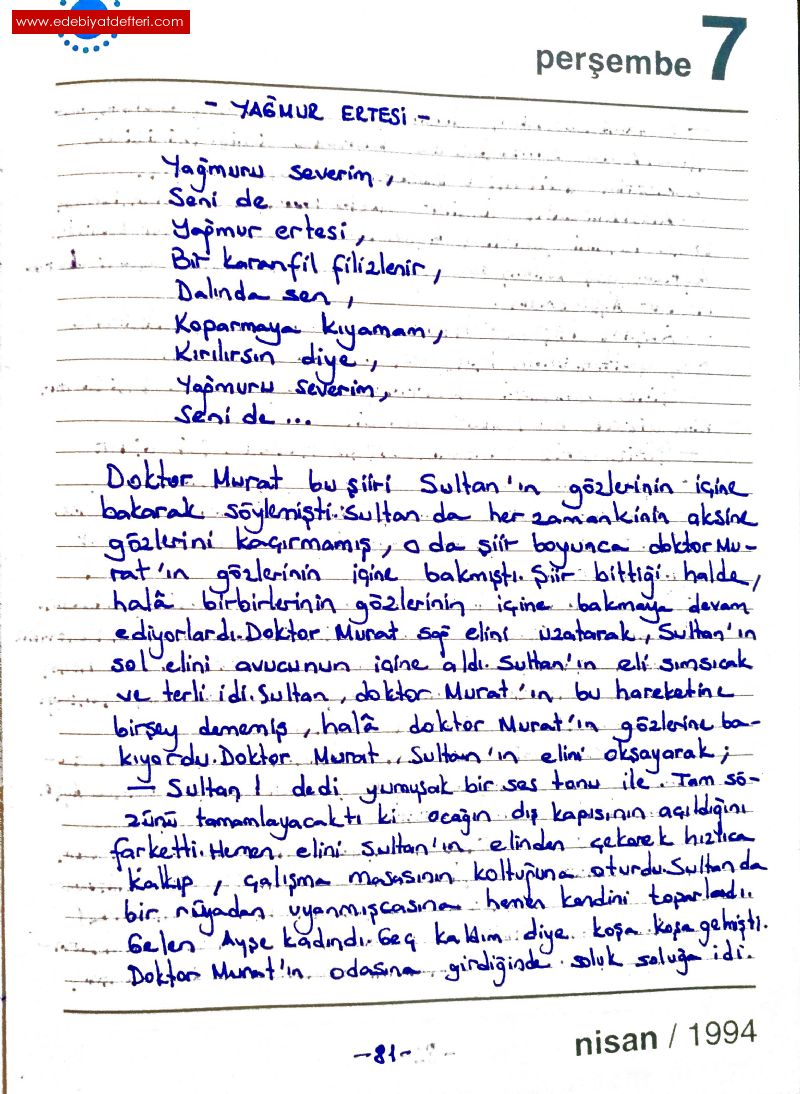 www.edebiyatdefteri.com
perşembe 7
- YAĞMUR ERTESİ -
Yağmuru severim,
Seni de ...
Yağmur ertesi,
Bir karanfil filizlenir,
Dalında sen,
Koparmaya kıyamam,
Kırılırsın diye,
Yağmuru severim,
Seni de ...
Doktor Murat bu şiiri Sultan'ın gözlerinin içine
bakarak söylemişti. Sultan da her zamankinin aksine
gözlerini kaçırmamış, o da şiir boyunca doktor Mu-
rat'ın gözlerinin içine bakmıştı. Şiir bittiği halde,
halâ birbirlerinin gözlerinin içine bakmaya devam
ediyorlardı. Doktor Murat sağ elini uzatarak, Sultan'ın
sol elini avucunun içine aldı. Sultan'ın eli sımsıcak
ve terli idi. Sultan, doktor Murat'ın bu hareketine
birşey dememiş, halâ doktor Murat'ın gözlerine ba-
kıyordu. Doktor Murat, Sultan'ın elini okşayarak;
- Sultan! dedi yumuşak bir ses tonu ile. Tam sö-
zünü tamamlayacaktı ki ocağın dış kapısının açıldığını
farketti. Hemen elini Sultan'ın elinden çekerek hızlıca
kalkıp, çalışma masasının koltuğuna oturdu. Sultan da
bir rüyadan uyanmışcasına hemen kendini toparladı.
Gelen Ayşe kadındı. Geç kaldım diye koşa koşa gelmişti.
Doktor Murat'ın odasına girdiğinde soluk soluğa idi.
-81-
nisan / 1994